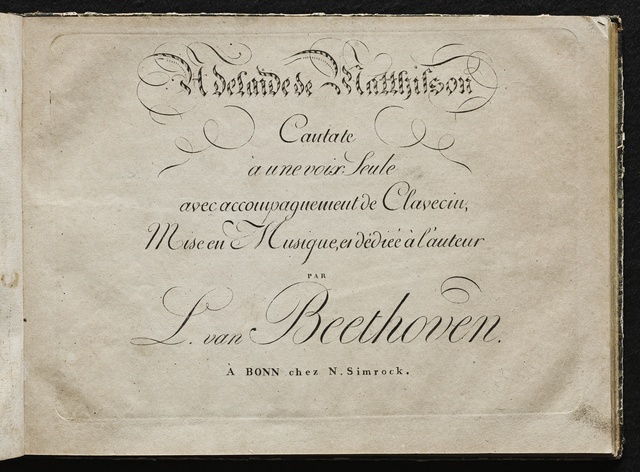 Adelaide de Matthisson
Cantate
à une voix Seule
avec accompagnement de Clavecin,
Mise en Musique, et dédiée à l'auteur
PAR
L. van Beethoven.
À BONN chez N. Simrock.